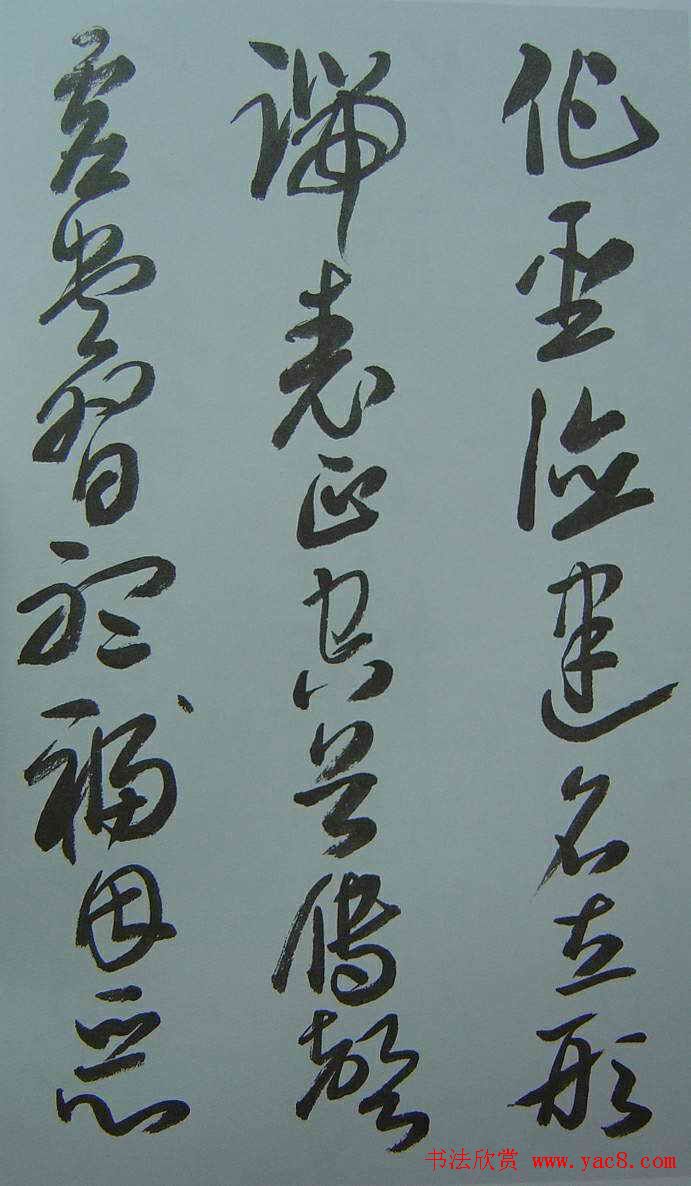 作聖德建名立形
端表正空谷傳聲
虛堂習聽禍因惡
书法欣赏 www.yac8.com